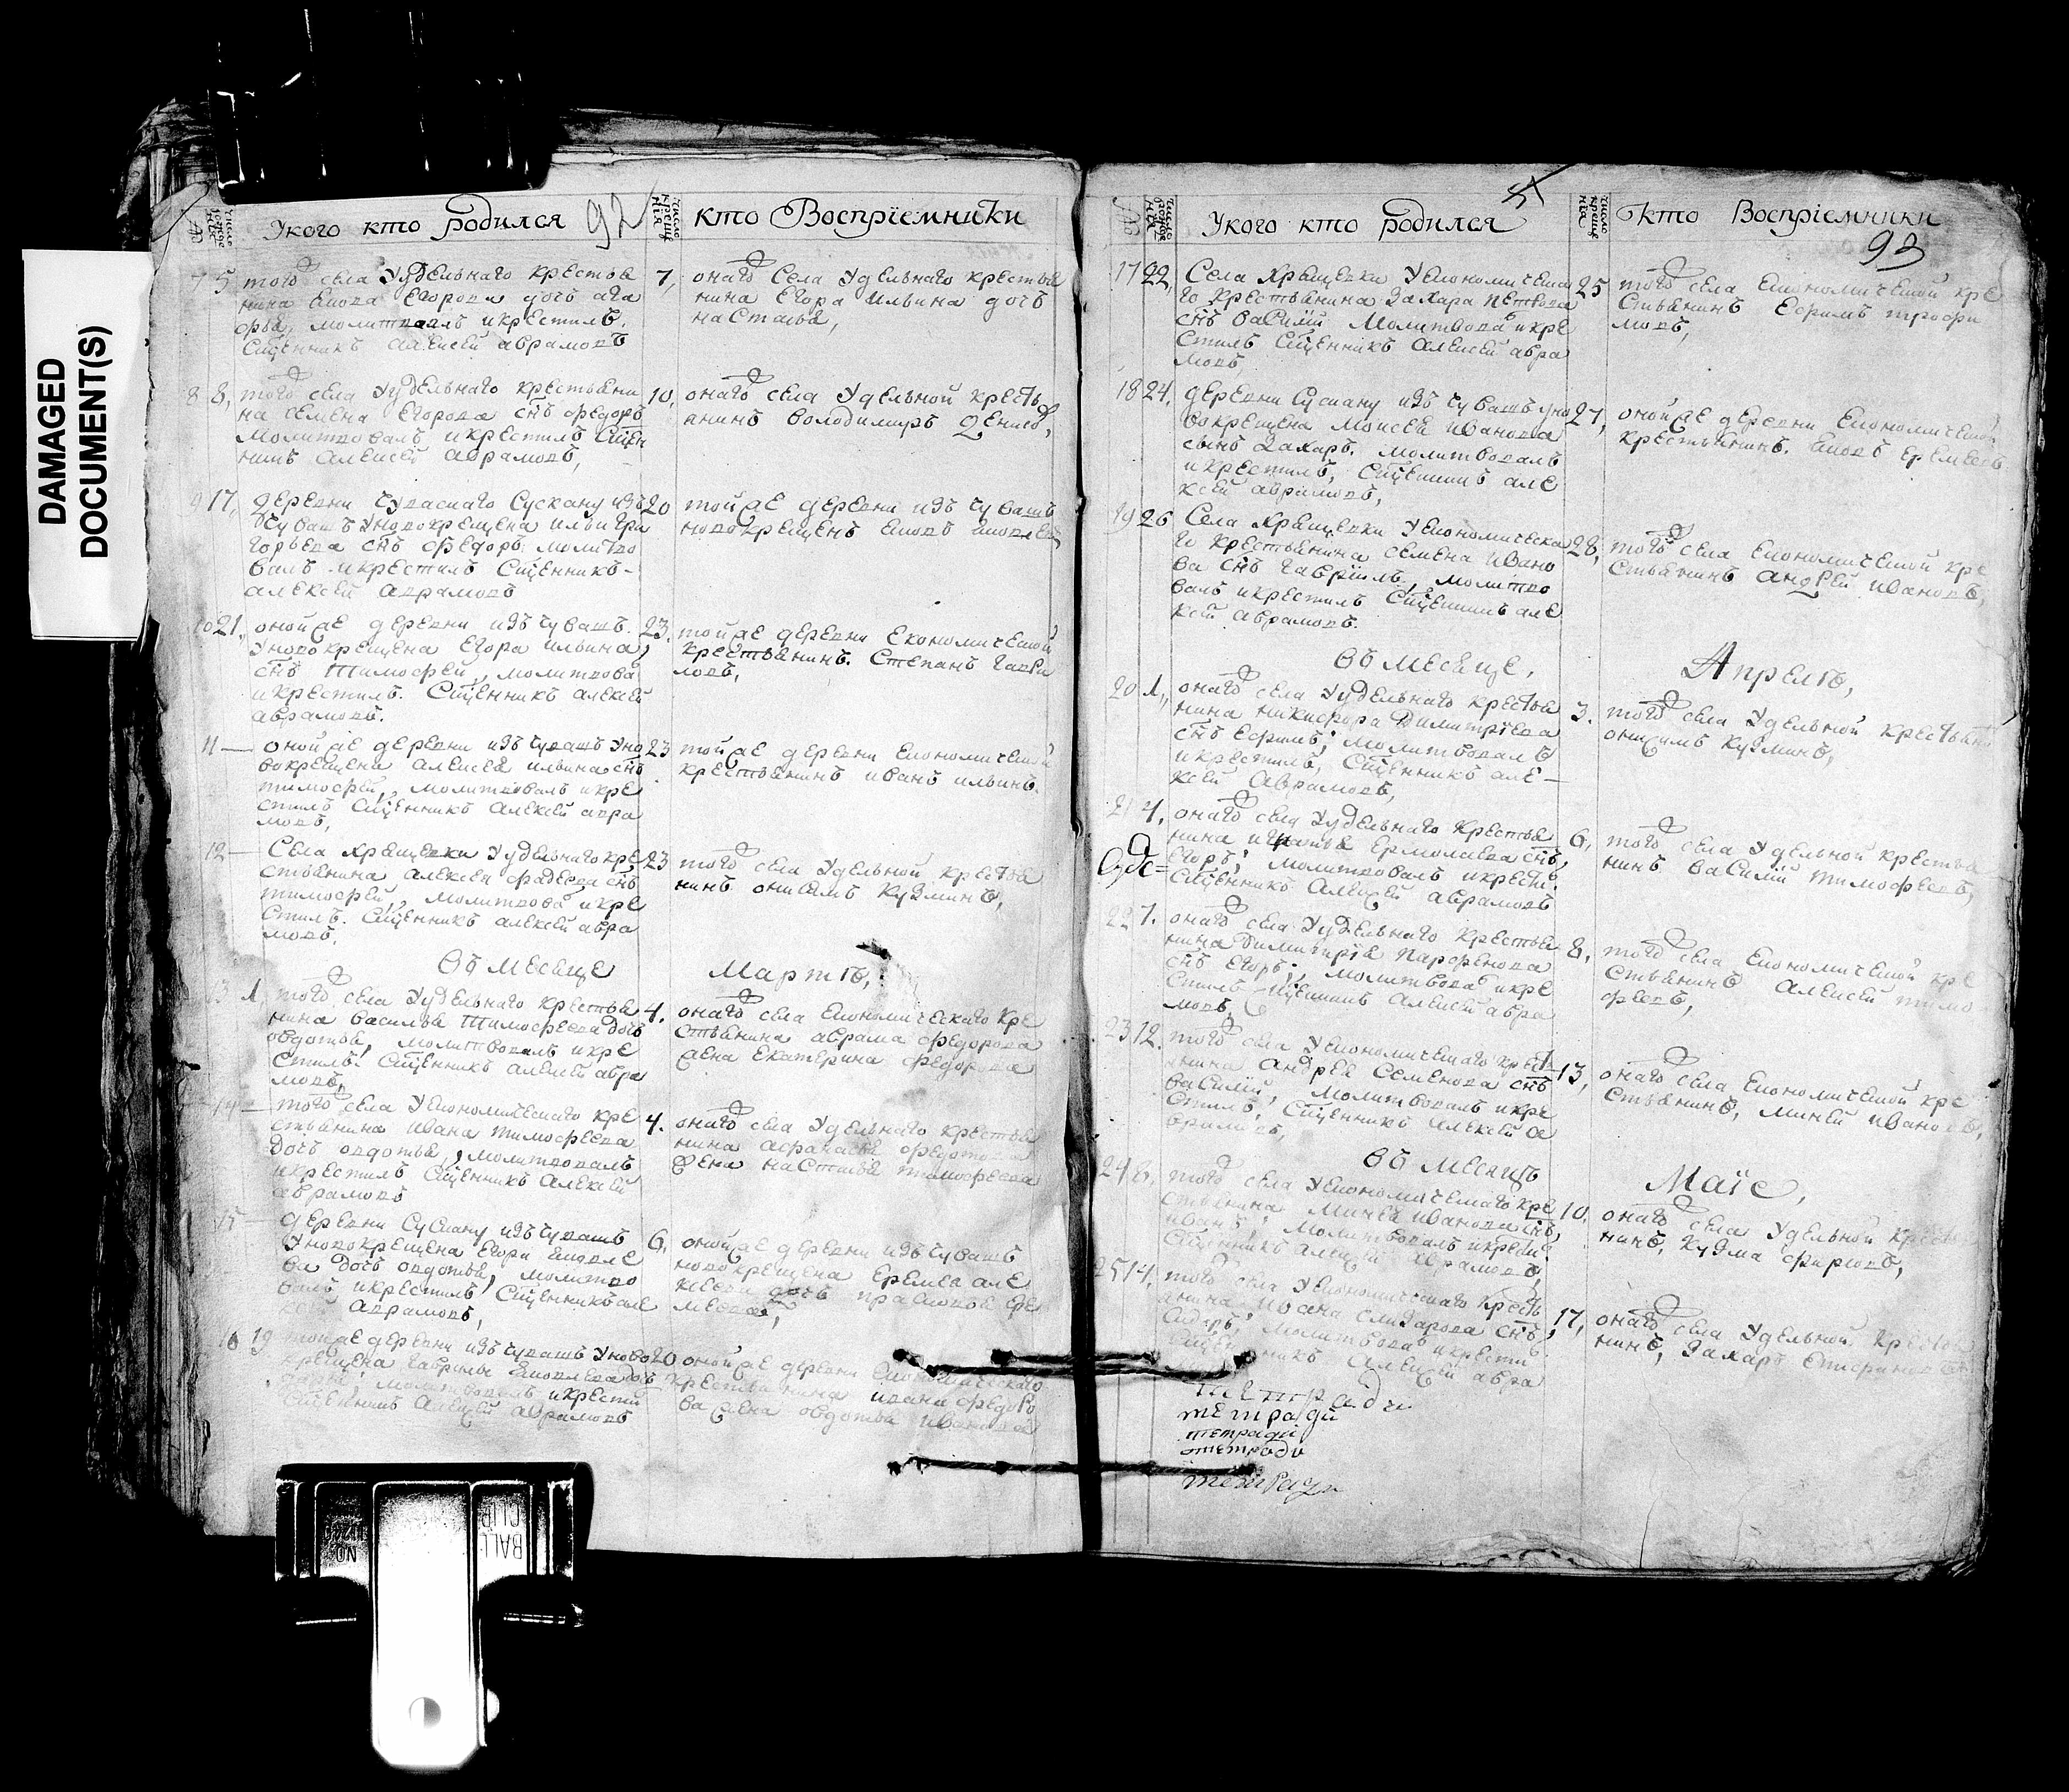 DAMAGED
DOCUMENT(S)
число рождения
Укого кто родился
92
число крещения
кто Восприемники
7 5 того села Уудельнаго крестья
нина Егорова дочь ага
фья, молитвовалъ икрестилъ
Сщенникъ алексей аврамовъ
7, онаго села Удельнаго крестья
нина Егора ильина дочь
настасья,
8 8, того села Уудельнаго крестьяни
на семена Егорова снъ федоръ
молитвовалъ икрестилъ Сщен
никъ алексей аврамовъ,
10, онаго села Удельной кресть
янинъ володимиръ денисо,
9 17, деревни чуваскаго Сускану изъ
чувашъ Уновокрещена ильи гри
горьева снъ федоръ молитво
валъ икрестилъ Сщенникъ
алексей аврамовъ
20 тойже деревни изъ чувашъ
новокрещенъ
10 21, онойже деревни изъ чувашъ
Уновокрещена Егора ильина
снъ тимофей, молитвова
икрестилъ. Сщенникъ алексей
аврамовъ.
23. тойже деревни Економической
крестьянинъ. Степанъ гаври
ловъ,
11 — онойже деревни изъ чувашъ Уно
вокрещена алексея ильина снъ
тимофей, молитвовалъ икре
стилъ Сщенникъ алексей авра
мовъ,
23 тойже деревни Економической
крестьянинъ иванъ ильинъ.
12 — Села хрящевки Уудельнаго кре
стьянина алексея фадеева снъ
тимофей, молитвова икре
Стилъ. Сщенникъ алексей авра
мовъ.
23 того села Удельной крестья
нинъ онисимъ Кузминъ,
Въ Месяце Мартъ,
13 1, того села Уудельнаго крестья
нина василья тимофеева дочь
овдотья, молитвовалъ икре
Стилъ. Сщенникъ алексей авра
мовъ,
4. онаго села Економическаго кре
стьянина аврама федорова
жена екатерина федорова
14 — того села Уекономическаго кре
стьянина ивана тимофеева
дочь овдотья, молитвовалъ
икрестилъ Сщенникъ алексей
аврамовъ
4. онаго села Удельнаго крестья
нина афанасья федотова
жена настасья тимофеева
15 — деревни Сускану изъ чувашъ
Уновокрещена Егора
ва дочь овдотья, молитво
валъ икрестилъ, Сщенникъ але
ксей аврамовъ,
6, онойже деревни изъ чувашъ
новокрещена Еремея але
ксеева дочь прасковья Ере
меева,
16 19 тойже деревни изъ чувашъ Уново
крещена гаврилы дочь
молитвовалъ икрести
Сщенникъ алексей аврамовъ
20 онойже деревни Економическаго
крестьянина ивана федоро
ва жена овдотья иванова
число рождения
Укого кто родился
51
число крещения
кто Восприемники
93
17 22, Села хрящевки Уекономическа
го крестьянина захара петрова
снъ василий молитвова икре
Стилъ Сщенникъ алексей авра
мовъ,
25 того села Економической кре
Стьянинъ Ефимъ трофи
мовъ,
18 24, деревни Сускану изъ чувашъ уно
вокрещена Моисея иванова
сынъ захаръ. молитвовалъ
икрестилъ, Сщенникъ але
ксей аврамовъ,
27, онойже деревни Економической
крестьянинъ. Еремеевъ
19 26 Села хрящевки Уекономическа
го крестьянина семена ивано
ва снъ гаврiилъ, молитво
валъ икрестилъ Сщенникъ але
ксей аврамовъ.
28, того села Економической кре
Стьянинъ андрей ивановъ,
Въ Месяце, Апрелъ,
20 1, онаго села Уудельнаго крестья
нина никифора димитрiева
снъ ефимъ; молитвовалъ
икрестилъ, Сщенникъ але—
ксей аврамовъ,
3. того села Удельной крестьяни
онисимъ кузминъ,
21 4, онаго села Уудельнаго крестья
нина игнатья Ермолаева снъ,
егоръ; молитвовалъ икрести.
Сщенникъ алексей аврамовъ
6, того села Удельной крестья
нинъ василiй тимофеевъ,
22 7. онаго села Уудельнаго крестья
нина димитрiя парфенова
снъ егоръ; молитвова икре
Стилъ Сщенникъ алексей авра
мовъ,
8, того села Економической кре
Стьянинъ алексей тимо
феевъ,
23 12. того села Уекономическаго крест
янина андрея семенова снъ
василий, молитвовалъ икре
Стилъ. Сщенникъ алексей а
врамовъ,
13, онаго села Економической кре
Стьянинъ, миней ивановъ,
Въ Месяцъ Маiе,
24 6, того села Уекономическаго кре
стьянина минея иванова снъ,
иванъ; молитвовалъ икрести
Сщенникъ алексей аврамовъ,
10, онаго села Удельной кресть
нинъ, кузма фирсовъ,
25 14, того села Уекономическаго кресть
янина елизарова снъ,
сидоръ; молитвова икрести
Сщенникъ алексей авра
17, онаго села Удельной крестья
нинъ, захаръ
тетради
тетради
тетради
тетради
тетради